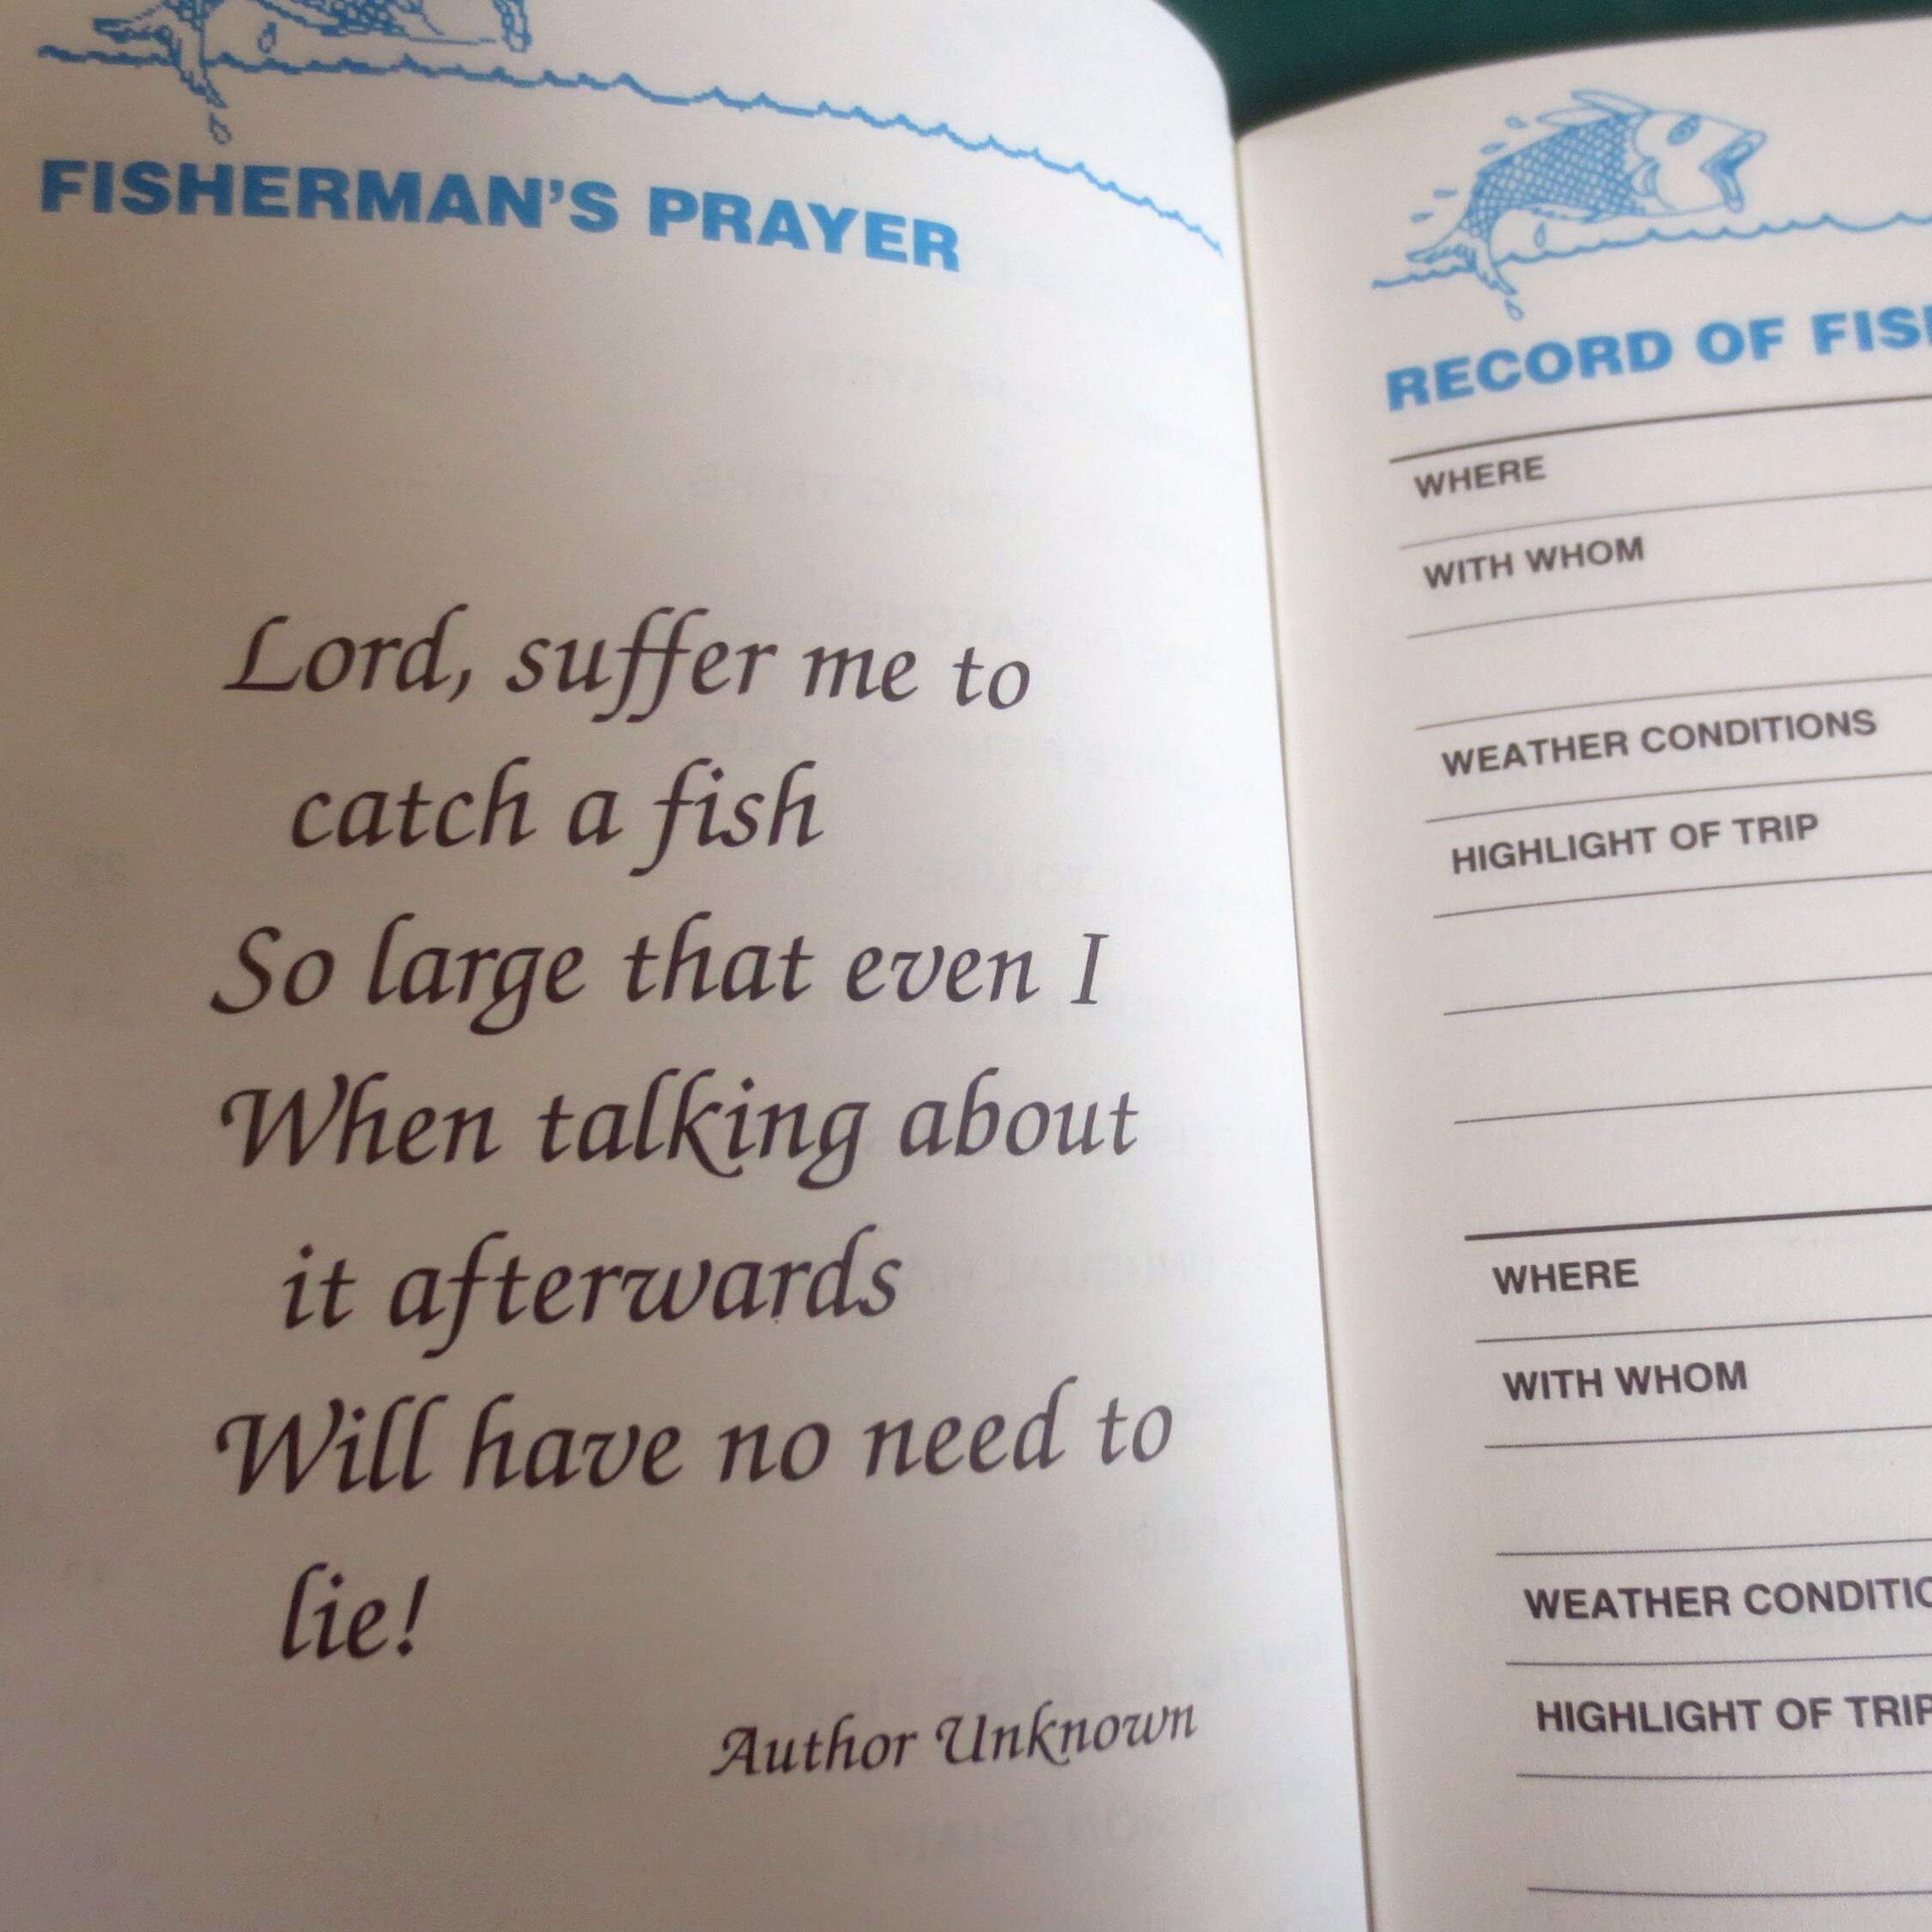 FISHERMAN'S PRAYER
Lord, suffer me to
catch a fish
So large that even I
When talking about
it afterwards
Will have no need to
lie!
Author Unknown
RECORD OF
WHERE
WITH WHOM
WEATHER CONDITIONS
HIGHLIGHT OF TRIP
WHERE
WITH WHOM
WEATHER
HIGHLIGHT OF TRIP